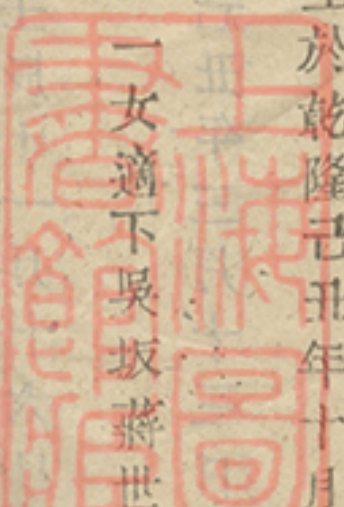 於乾隆己丑年十月
一女適下吳坂蔣世
上海圖
書館